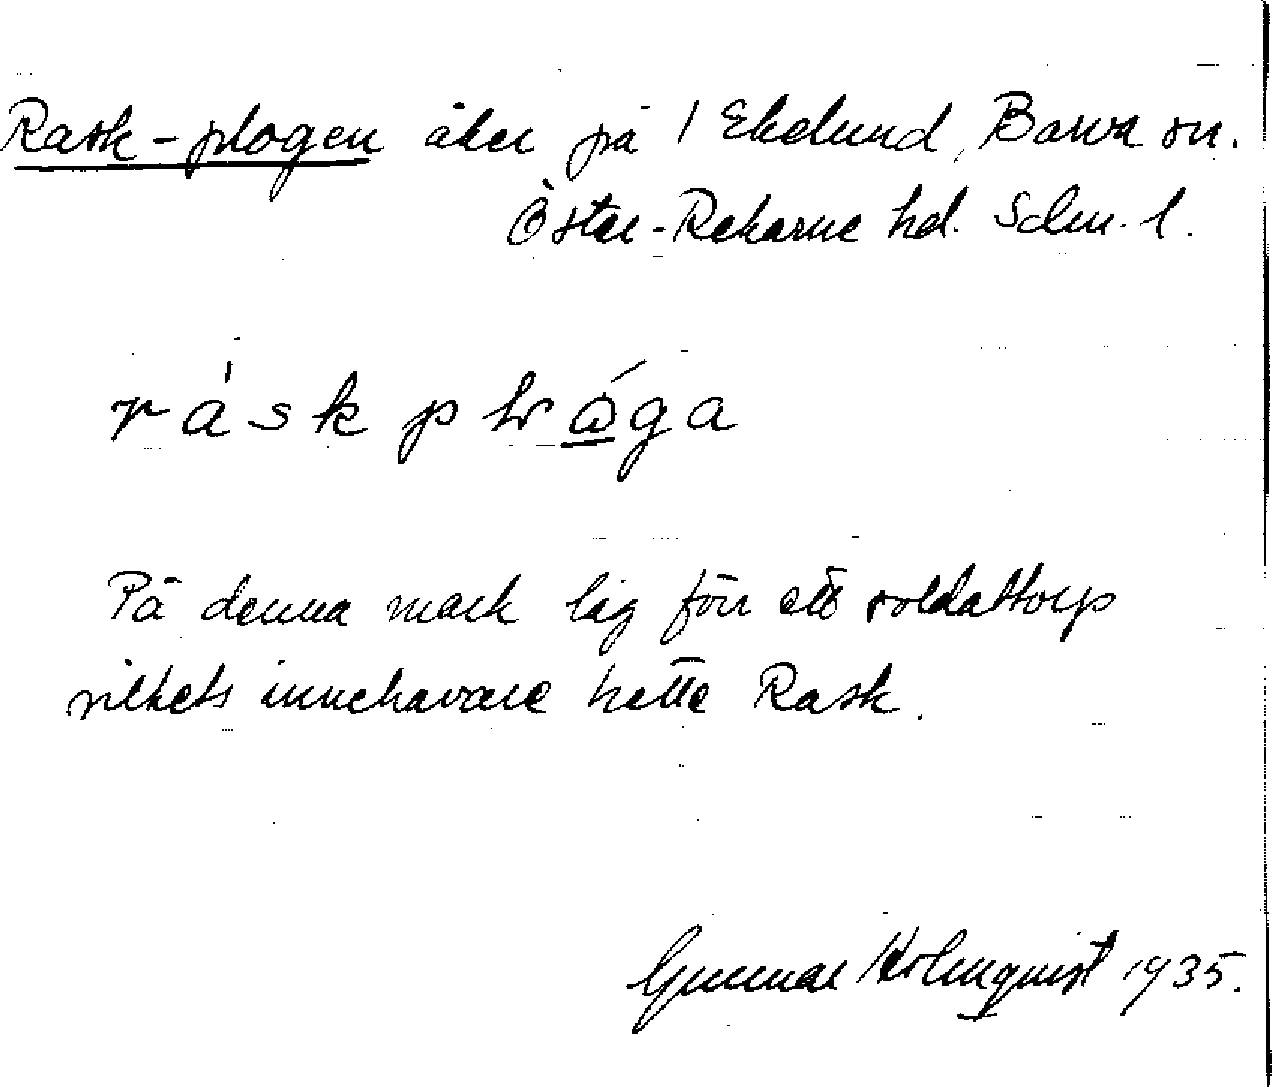 Rask-plogen åker på 1 Ekelund, Barva sn.
Öster-Rekarne hd. Sdm. l.
På denna mark låg förr ett soldattorp
vilkets innehavare hette Rask.
Gunnar Holmquist 1935.